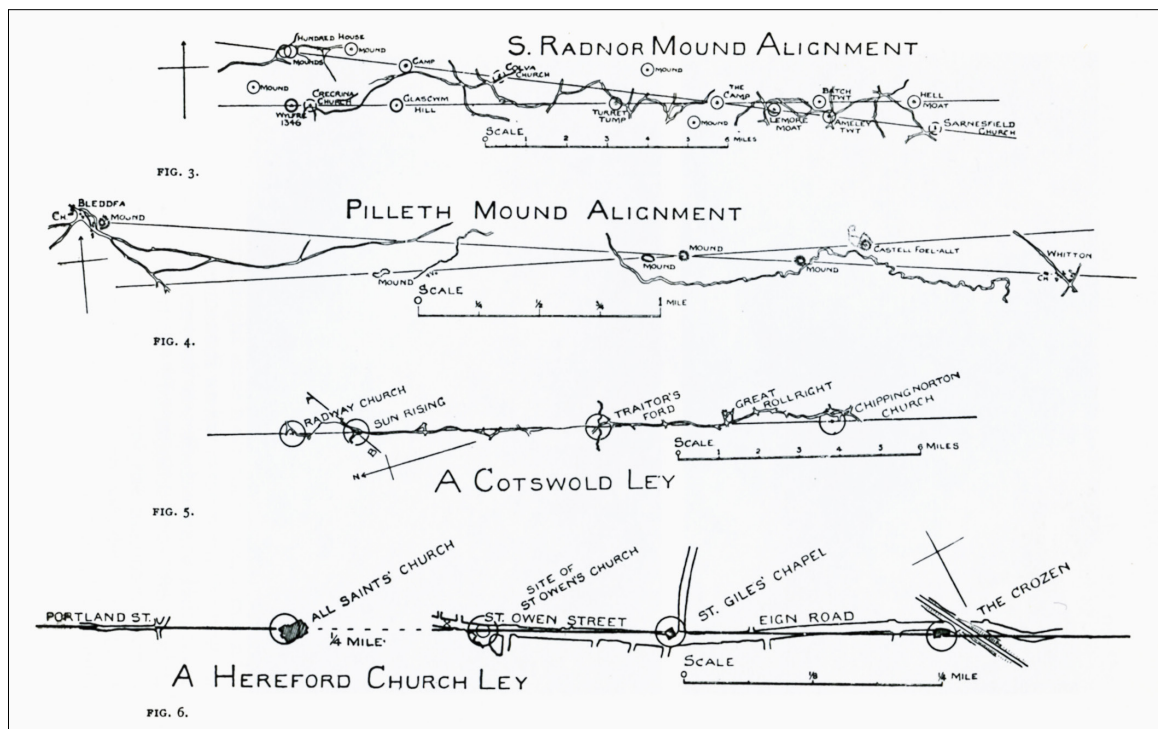 S. RADNOR MOUND ALIGNMENT
HUNDRED HOUSE
MOUND
MOUNDS
CAMP
COLVA CHURCH
MOUND
MOUND
CRECRINA CHURCH
WYLFRE 1346
GLASCWM HILL
TURRET TUMP
MOUND
THE CAMP
LEMORE MOAT
BATCH TWT
AMELEY TWT
HELL MOAT
SARNESFIELD CHURCH
SCALE
0 1 2 3 4 5 6 MILES
FIG. 3.
PILLETH MOUND ALIGNMENT
BLEDDFA
CH.
MOUND
MOUND
MOUND
MOUND
MOUND
CASTELL FOEL-ALLT
WHITTON
CH.
SCALE
0 ¼ ½ ¾ 1 MILE
FIG. 4.
RADWAY CHURCH
SUN RISING
A
B
N
TRAITOR'S FORD
GREAT ROLLRIGHT
CHIPPING NORTON CHURCH
SCALE
0 1 2 3 4 5 6 MILES
A COTSWOLD LEY
FIG. 5.
PORTLAND ST.
ALL SAINTS' CHURCH
¼ MILE.
SITE OF ST OWEN'S CHURCH
ST. OWEN STREET
ST. GILES' CHAPEL
EIGN ROAD
THE CROZEN
SCALE
0 ⅛ ¼ MILE
A HEREFORD CHURCH LEY
FIG. 6.